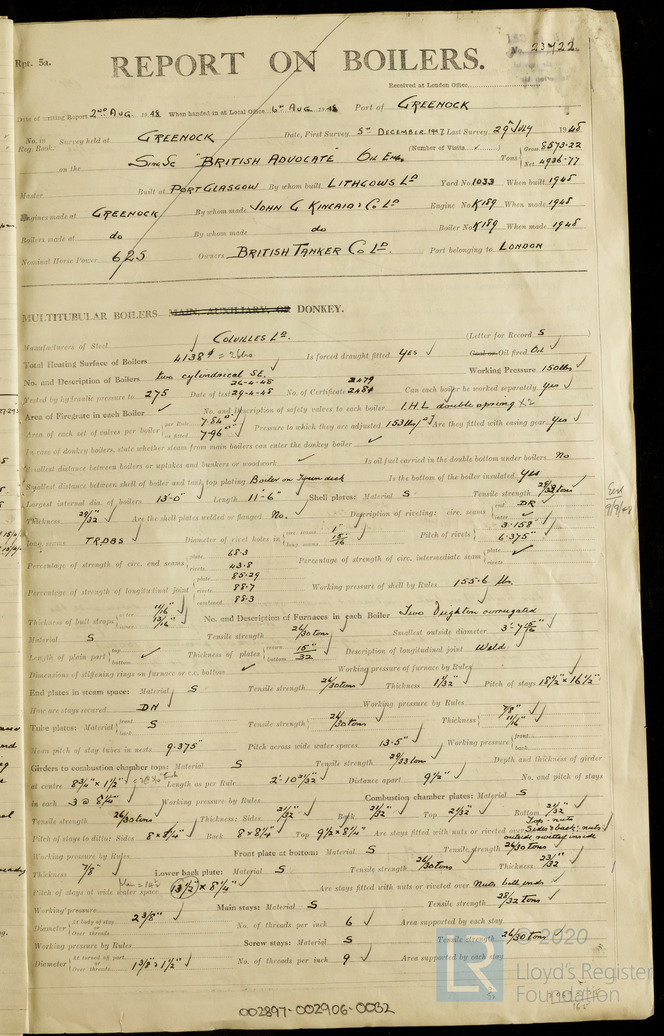 Rpt. 5a.
No. 23722
REPORT ON BOILERS.
Received at London Office
Date of writing Report 2nd AUG. 1948 When handed in at Local Office 6th AUG. 1948 Port of GREENOCK
No. in Reg. Book. Survey held at GREENOCK Date, First Survey 5th DECEMBER 1947 Last Survey 29th JULY 1948
on the SING SC "BRITISH ADVOCATE" OIL ENG. (Number of Visits ) Tons { Gross 8573.22 Net 4936.77
Master Built at PORT GLASGOW By whom built LITHGOWS LD Yard No 1033 When built 1948
Engines made at GREENOCK By whom made JOHN G KINCAID & CO LD Engine No K189 When made 1948
Boilers made at do By whom made do Boiler No K189 When made 1948
Nominal Horse Power 625 Owners BRITISH TANKER CO LD. Port belonging to LONDON
MULTITUBULAR BOILERS MAIN, AUXILIARY, OR DONKEY.
Manufacturers of Steel COLVILLES LD. (Letter for Record S )
Total Heating Surface of Boilers Is forced draught fitted YES Coal or Oil fired OIL
No. and Description of Boilers two cylindrical SE. Working Pressure 150 lbs
Tested by hydraulic pressure to 275 Date of test 26-4-48 29-4-48 No. of Certificate 2479 Can each boiler be worked separately yes
Area of Firegrate in each Boiler No. and Description of safety valves to each boiler I.H.L double spring X2
Area of each set of valves per boiler { per Rule 7.84 as fitted 7.96 Pressure to which they are adjusted 153 lbs/ Are they fitted with easing gear yes
In case of donkey boilers, state whether steam from main boilers can enter the donkey boiler
Smallest distance between boilers or uptakes and bunkers or woodwork Is oil fuel carried in the double bottom under boilers No
Smallest distance between shell of boiler and tank top plating Boiler on Tween deck Is the bottom of the boiler insulated yes
Largest internal dia. of boilers 13'-0" Length 11'-6" Shell plates: Material S Tensile strength 28/32 tons
Thickness 29/32 Are the shell plates welded or flanged No. Description of riveting: circ. seams { end DR inter
long. seams TRDBS Diameter of rivet holes in { circ. seams 1" long. seams 15/16 Pitch of rivets { 3.158" 6.375"
Percentage of strength of circ. end seams { plate 68.3 rivets 43.8 Percentage of strength of circ. intermediate seam { plate rivets
Percentage of strength of longitudinal joint { plate 85.29 rivets 88.7 combined 88.3 Working pressure of shell by Rules 155.6 lbs
Thickness of butt straps { outer 11/16" inner 13/16" No. and Description of Furnaces in each Boiler Two Deighton corrugated
Material S Tensile strength 26/30 tons Smallest outside diameter 3'-7 15/16"
Length of plain part { top bottom Thickness of plates { crown bottom 15"/32 Description of longitudinal joint Weld.
Dimensions of stiffening rings on furnace or c.c. bottom Working pressure of furnace by Rules
End plates in steam space: Material S Tensile strength 26/30 tons Thickness 1 1/32" Pitch of stays 18 1/2" x 16 1/2"
How are stays secured DN Working pressure by Rules
Tube plates: Material { front back S Tensile strength { 26/30 tons Thickness { 7/8" 11/16"
Mean pitch of stay tubes in nests 9.375" Pitch across wide water spaces 13.5" Working pressure { front back
Girders to combustion chamber tops: Material S Tensile strength 29/33 ton Depth and thickness of girder
at centre 8 3/4" x 1 1/2" Length as per Rule 2'-10 21/32" Distance apart 9 1/2" No. and pitch of stays
in each 3 @ 8 1/4" Working pressure by Rules Combustion chamber plates: Material S
Tensile strength 26/30 tons Thickness: Sides 21/32" Back 21/32" Top 21/32" Bottom 21/32"
Pitch of stays to ditto: Sides 8 x 8 1/4" Back 8 x 8 1/4" Top 9 1/2 x 8 1/4" Are stays fitted with nuts or riveted over Top - nuts Sides & back: nuts outside, riveted inside
Working pressure by Rules Front plate at bottom: Material S Tensile strength 26/30 tons
Thickness 7/8" Lower back plate: Material S Tensile strength 26/30 tons Thickness 23/32"
Pitch of stays at wide water space 13 1/2" x 8 1/4" Are stays fitted with nuts or riveted over Nuts both ends
Working pressure Main stays: Material S Tensile strength 28/32 tons
Diameter { At body of stay or Over threads 2 3/8" No. of threads per inch 6 Area supported by each stay
Working pressure by Rules Screw stays: Material S Tensile strength 26/30 tons
Diameter { At turned off part or Over threads 1 3/8 & 1 1/2" No. of threads per inch 9 Area supported by each stay
© 2020
LR
Lloyd's Register
Foundation
002897-002906-0032